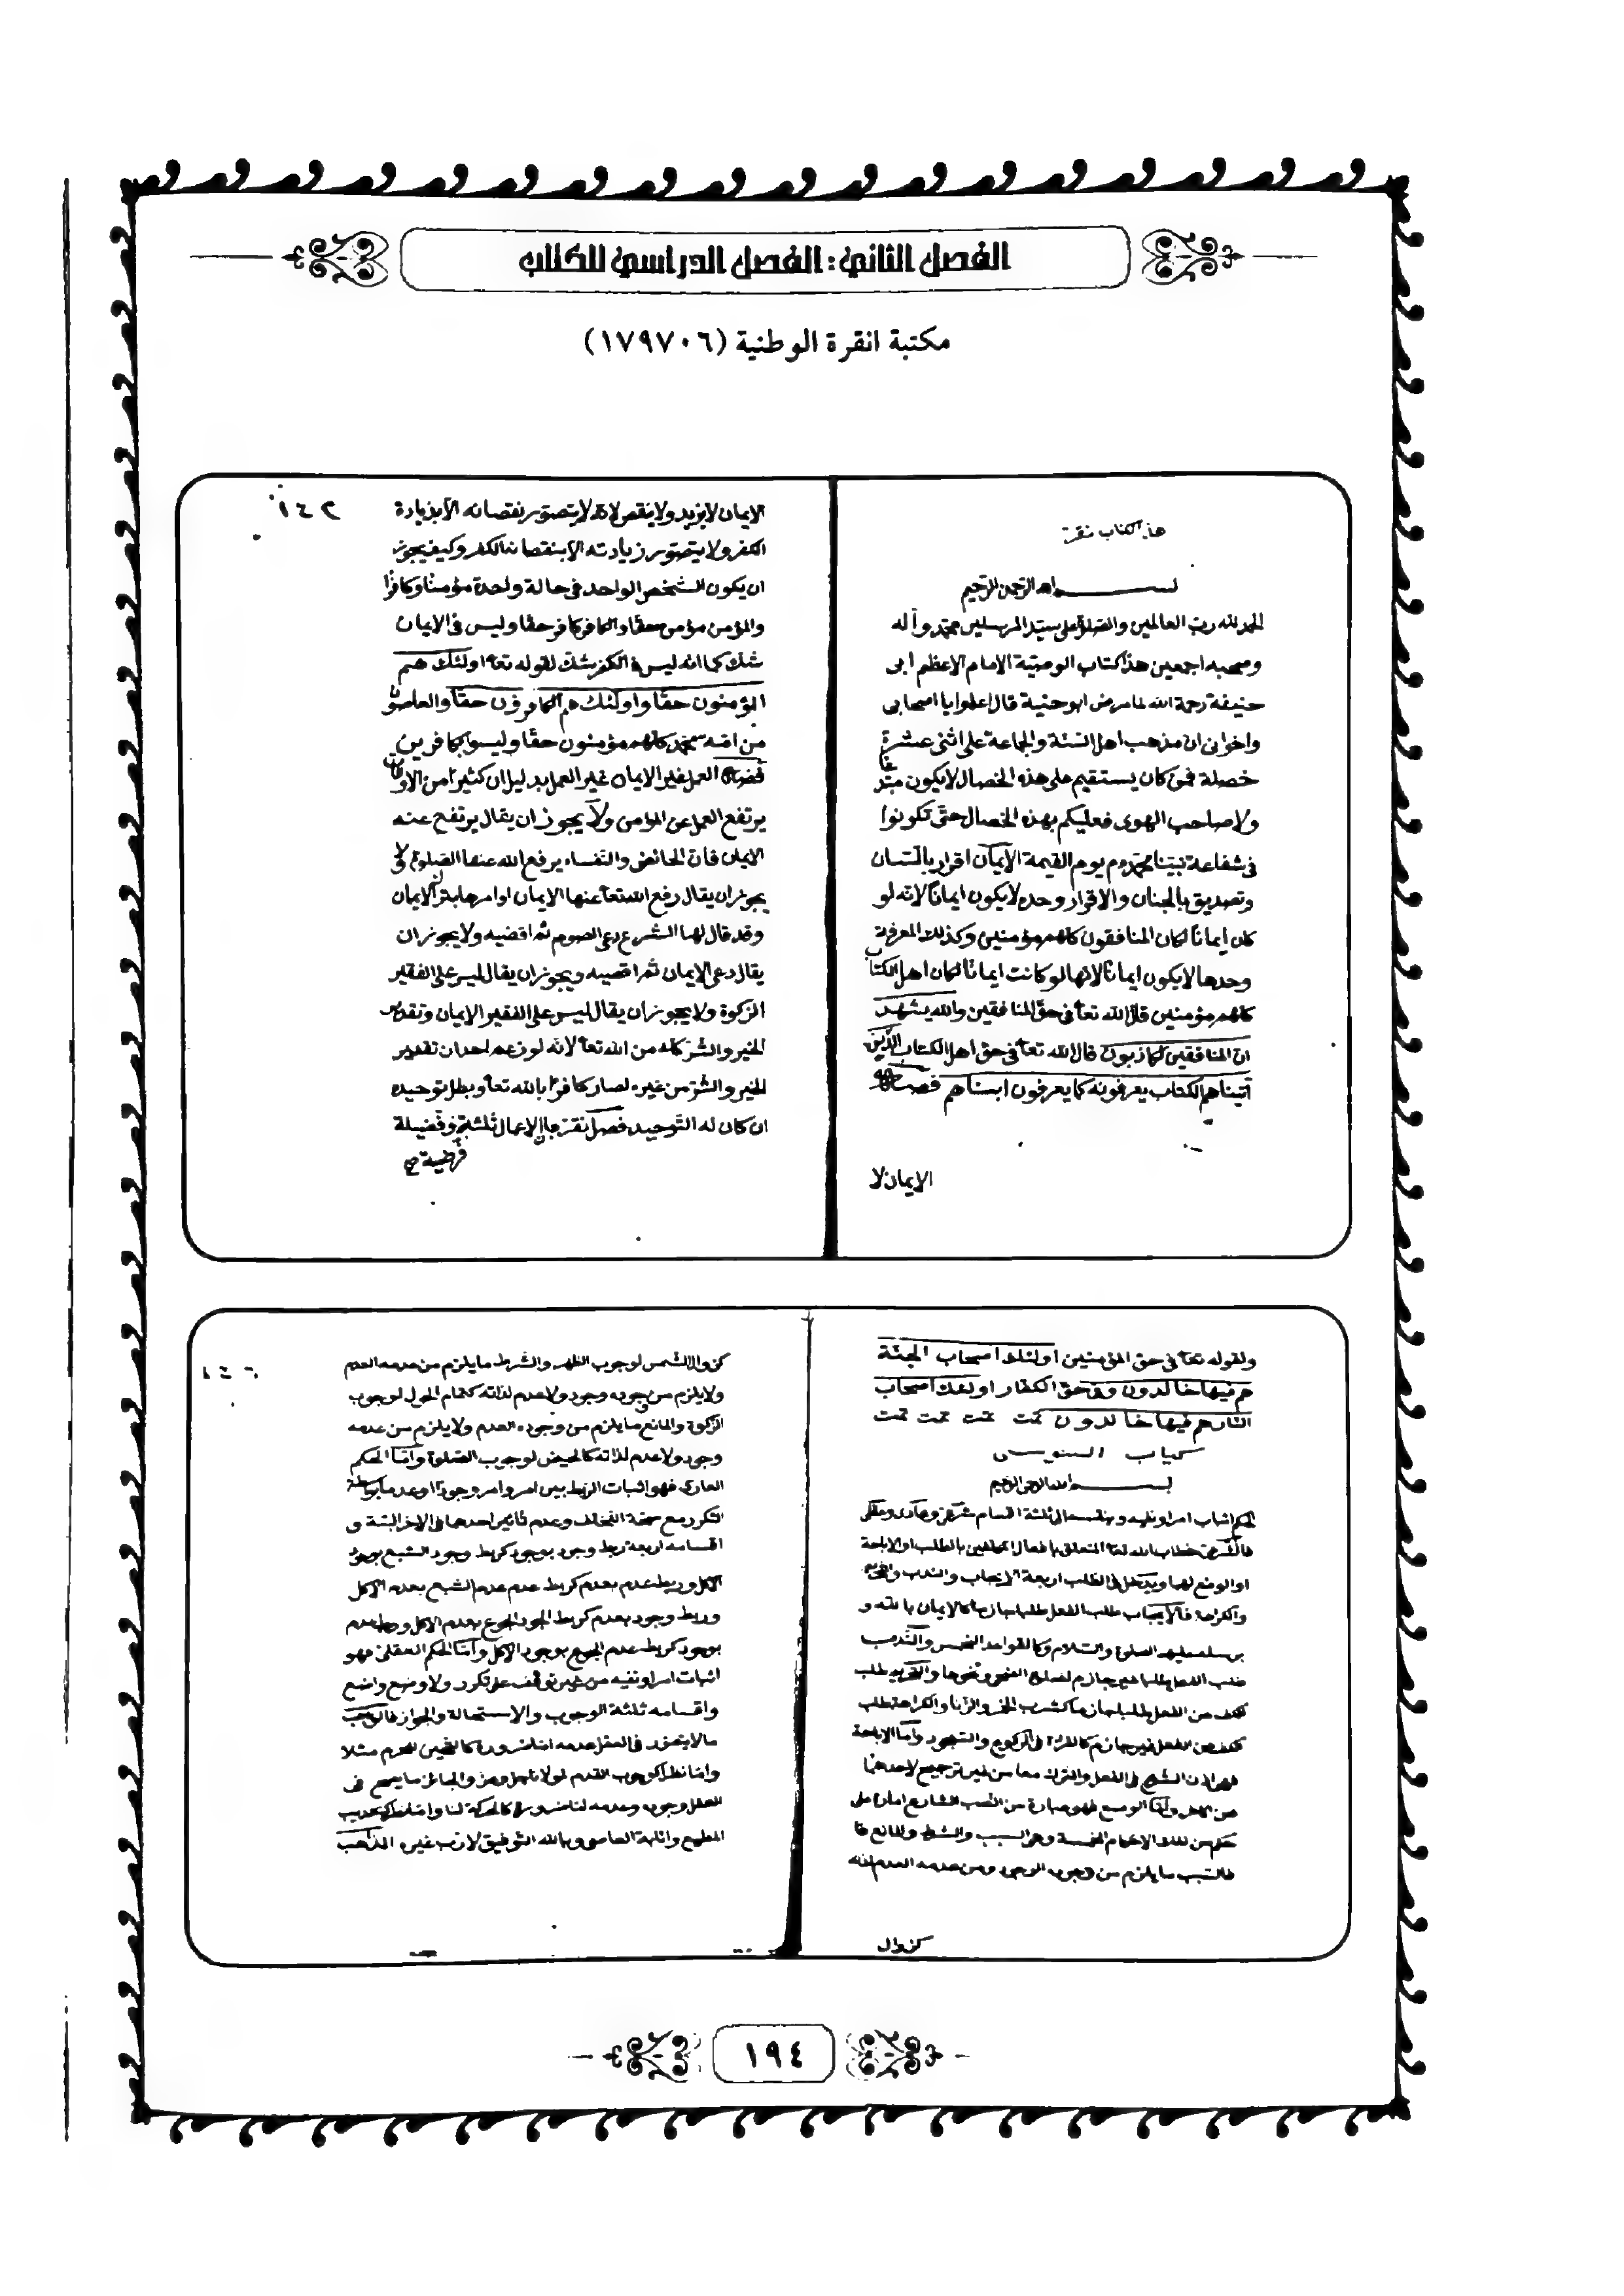 الفصل الثاني: الفصل الدراسي للكتاب
مكتبة انقرة الوطنية (١٧٩٧٠٦)
هذا كتاب نقرة
بسم الله الرحمن الرحيم
الحمد لله رب العالمين والصلوة على سيد المرسلين محمد وآله
وصحبه اجمعين هذا كتاب الوصية الامام الاعظم ابى
حنيفة رحمة الله لما مرض ابو حنيفة قال اعلموا يا اصحابى
واخوانى ان مذهب اهل السنة والجماعة على اثنى عشرة
خصلة فمن كان يستقيم على هذه الخصال لا يكون مبتدعا
ولا صاحب الهوى فعليكم بهذه الخصال حتى تكونوا
فى شفاعة نبينا محمد يوم القيمة الايمان اقرار باللسان
وتصديق بالجنان والاقرار وحده لا يكون ايمانا لانه لو
كان ايمانا لكان المنافقون كلهم مؤمنين وكذلك المعرفة
وحدها لا يكون ايمانا لانها لو كانت ايمانا لكان اهل الكتاب
كلهم مؤمنين قال الله تعا فى حق المنافقين والله يشهد
ان المنافقين لكاذبون قال الله تعا فى حق اهل الكتاب الذين
آتيناهم الكتاب يعرفونه كما يعرفون ابناهم فصل
الايمان لا
١٤٢
الايمان لا يزيد ولا ينقص لانه لا يتصور نقصانه الا بزيادة
الكفر ولا يتصور زيادته الا بنقصان الكفر وكيف يجوز
ان يكون الشخص الواحد فى حالة واحدة مؤمنا وكافرا
والمؤمن مؤمن حقا والكافر كافر حقا وليس فى الايمان
شك كما انه ليس فى الكفر شك لقوله تعا اولئك هم
المؤمنون حقا واولئك هم الكافرون حقا والعاصون
من امة محمد كلهم مؤمنون حقا وليسوا بكافرين
فصل العمل غير الايمان غير العمل بدليل ان كثيرا من الاوقات
يرتفع العمل عن المؤمن ولا يجوز ان يقال يرتفع عنه
الايمان فان الحائض والنفساء يرفع الله عنها الصلوة ولا
يجوز ان يقال رفع الله تعا عنها الايمان او امرها بترك الايمان
وقد قال لها الشرع دعى الصوم ثم اقضيه ولا يجوز ان
يقال دعى الايمان ثم اقضيه ويجوز ان يقال ليس على الفقير
الزكوة ولا يجوز ان يقال ليس على الفقير الايمان وتقدير
الخير والشر كله من الله تعا لانه لو زعم احد ان تقدير
الخير والشر من غيره لصار كافرا بالله تعا وبطل توحيده
ان كان له التوحيد فصل نقر بان الاعمال ثلثة وفضيلة
فرضية صح
ولقوله تعا فى حق المؤمنين اولئك اصحاب الجنة
هم فيها خالدون وفى حق الكفار اولئك اصحاب
النار هم فيها خالدون تمت تمت تمت تمت
كتاب السنوسى
بسم الله الرحمن الرحيم
الحكم اثبات امر او نفيه وينقسم الى ثلثة اقسام شرعى وعادى وعقلى
فالشرعى خطاب الله تعا المتعلق بافعال المكلفين بالطلب او الاباحة
او الوضع لهما ويدخل فى الطلب اربعة الايجاب والندب والتحريم
والكراهة فالايجاب طلب الفعل طلبا جازما كالايمان بالله و
برسله عليهم الصلوة والسلام وكالقواعد الخمس والندب
طلب الفعل طلبا غير جازم لصلوة الضحى ونحوها والتحريم طلب
كف عن الفعل طلبا جازما كشرب الخمر والزنا والكراهة طلب
كف عن الفعل غير جازم كالقراءة فى الركوع والسجود واما الاباحة
فهى اذن الشرع فى الفعل والترك معا من غير ترجيح لاحدهما
عن الاخر واما الوضع فهو عبارة من نصب الشارع امارة على
حكم من تلك الاحكام الخمسة وهى السبب والشرط والمانع
فالسبب ما يلزم من وجوده الوجود ومن عدمه العدم لذاته
كزوال
١٤٦
كزوال الشمس لوجوب الظهر والشرط ما يلزم من عدمه العدم
ولا يلزم من وجوده وجود ولا عدم لذاته كتمام الحول لوجوب
الزكوة والمانع ما يلزم من وجوده العدم ولا يلزم من عدمه
وجود ولا عدم لذاته كالحيض لوجوب الصلوة واما الحكم
العادى فهو اثبات الربط بين امر وامر وجودا او عدما بواسطة
التكرر مع صحة التخلف وعدم تأثير احدهما فى الاخر البتة و
اقسامه اربعة ربط وجود بوجود كربط وجود الشبع بوجود
الاكل وربط عدم بعدم كربط عدم الشبع بعدم الاكل
وربط وجود بعدم كربط وجود الجوع بعدم الاكل وربط عدم
بوجود كربط عدم الجوع بوجود الاكل واما الحكم العقلى فهو
اثبات امر او نفيه من غير توقف على تكرر ولا وضع واضع
واقسامه ثلثة الوجوب والاستحالة والجواز فالواجب
ما لا يتصور فى العقل عدمه اما ضرورة كالتحيز للجرم مثلا
واما نظرا كوجوب القدم لمولانا جل وعز والجائز ما يصح فى
العقل وجوده وعدمه اما ضرورة كالحركة لنا واما نظرا كتعذيب
المطيع واثابة العاصى وبالله التوفيق لا رب غيره المذاهب
١٩٤